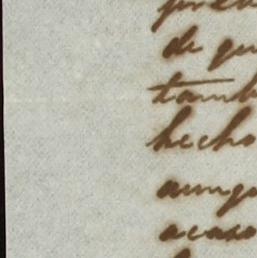 de qu
tamb
hecho
aunq
acaso